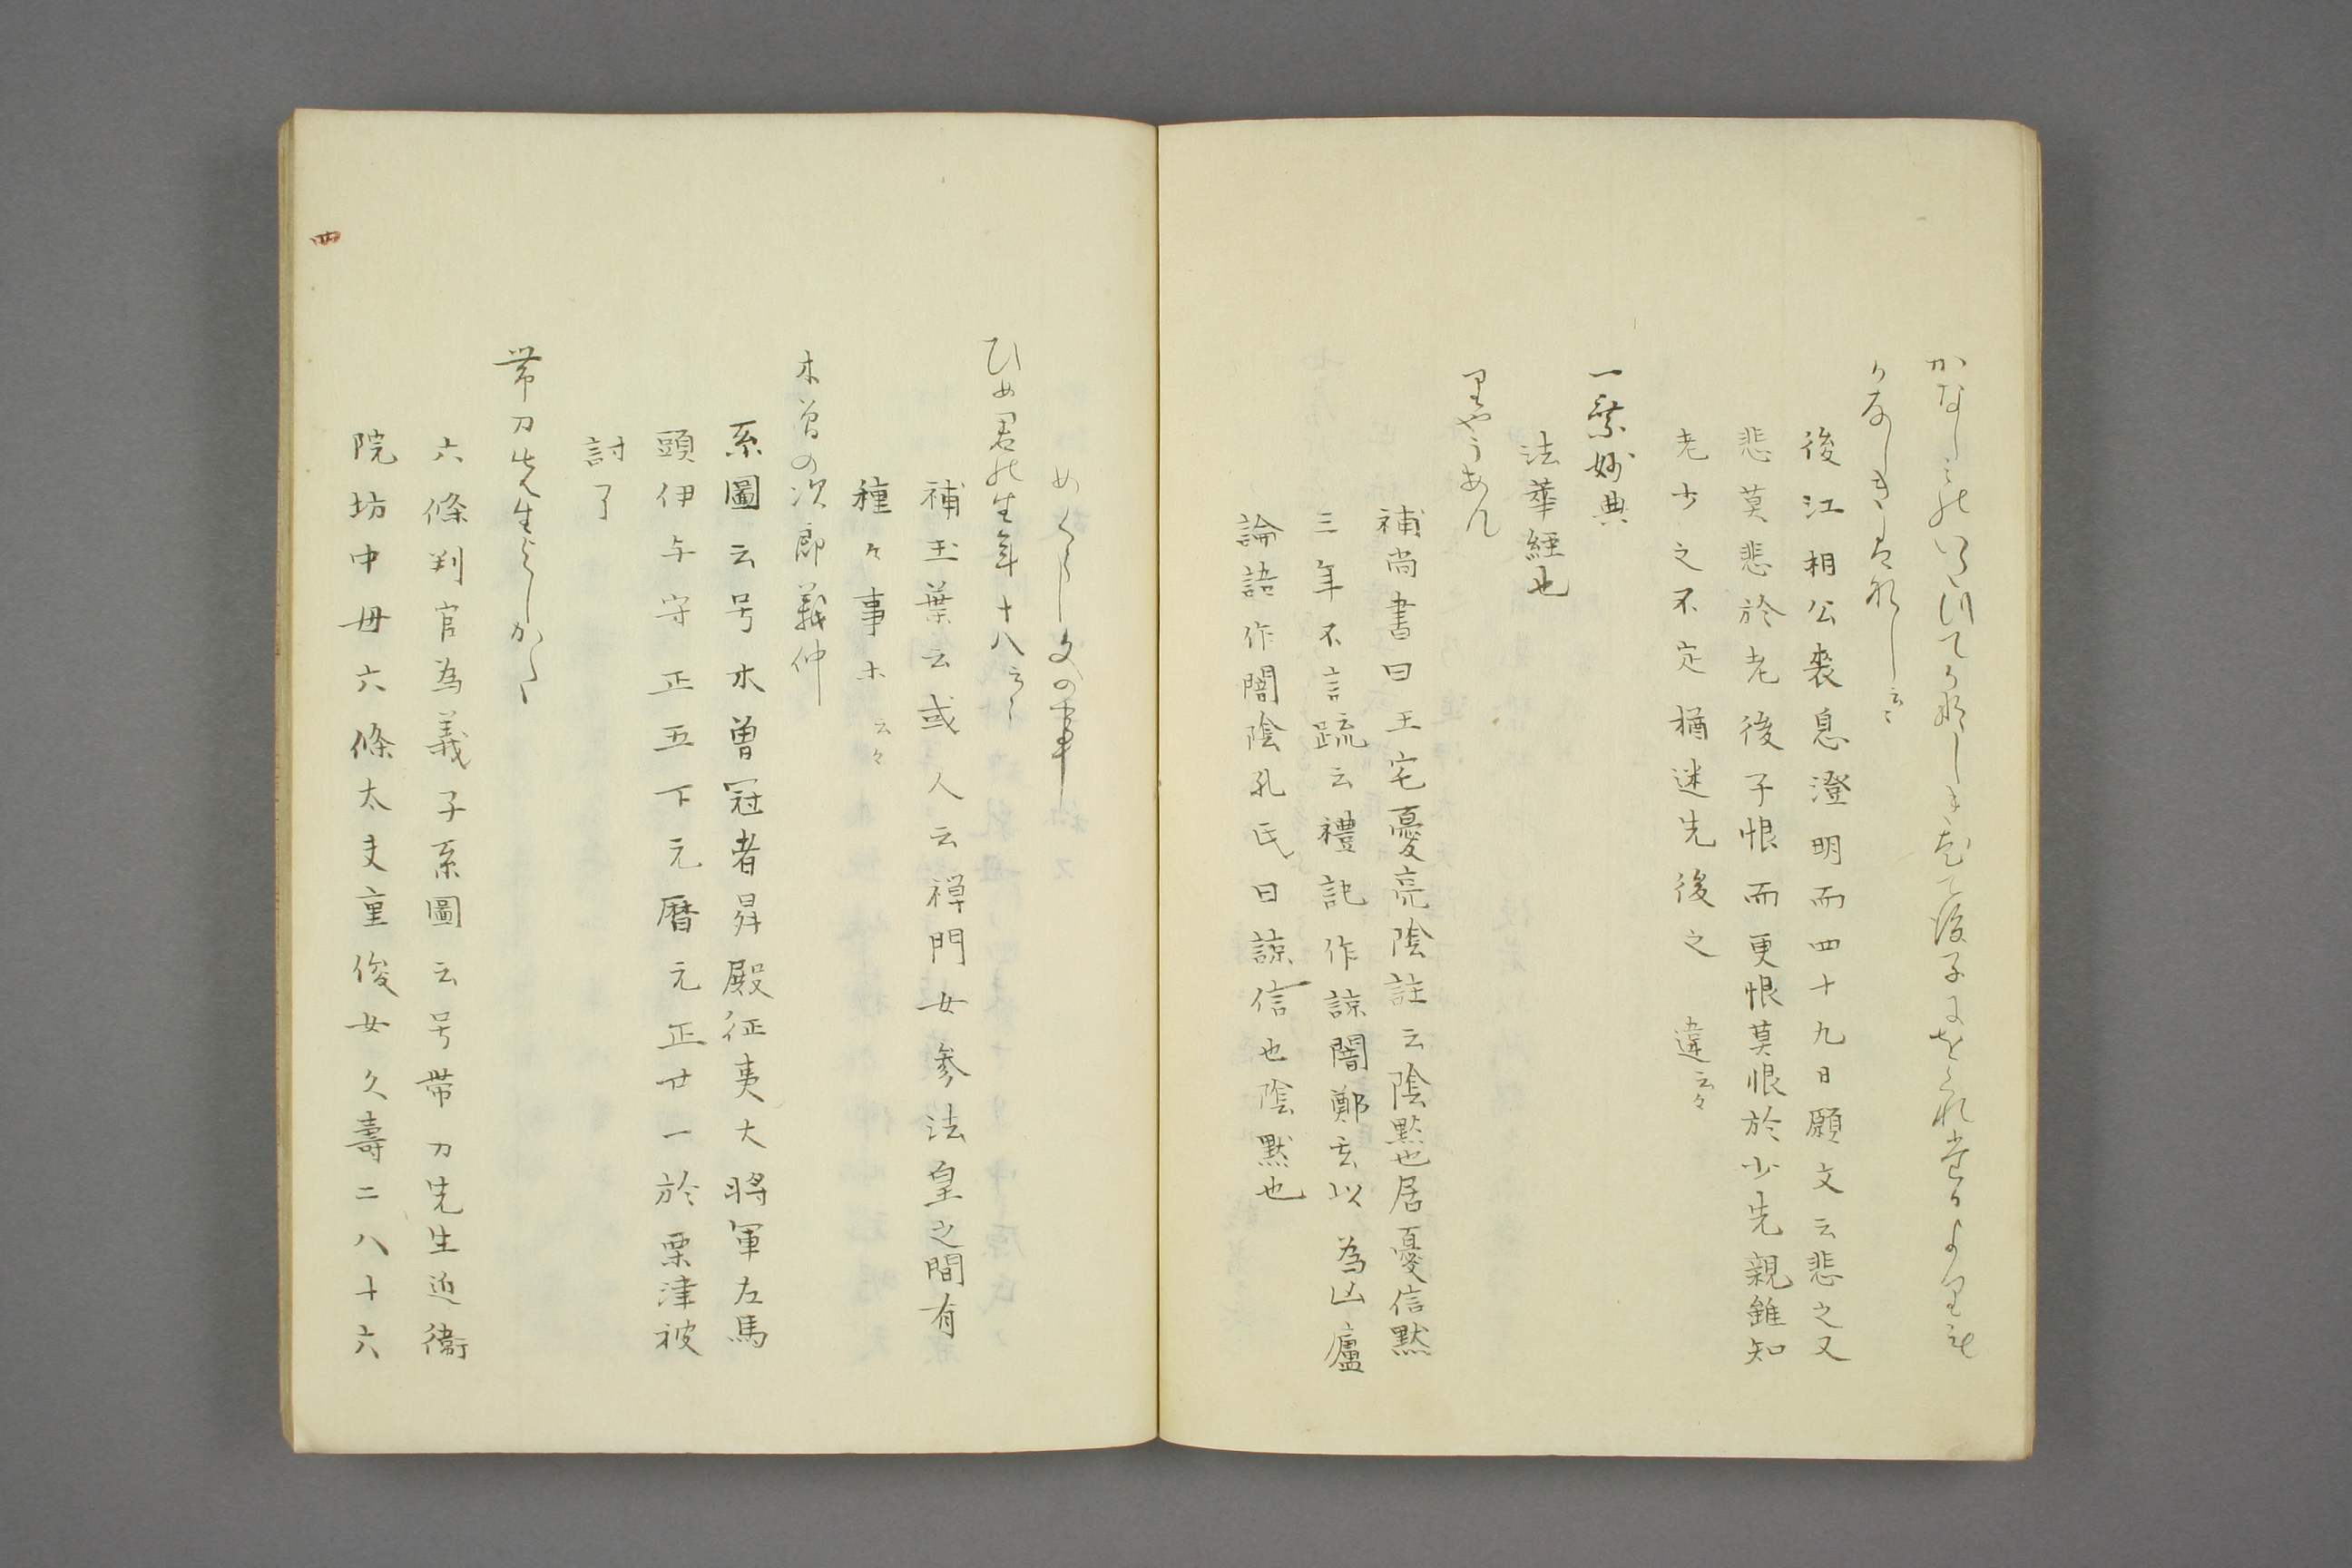 かなしみのいたつてかなしきは老て後子にをくれたるよりも
かなしきはなし云々
後江相公裘息澄明而四十九日願文云悲之又
悲莫悲於老後子恨而更恨莫恨於少先親雖知
老少之不定猶迷先後之 違云々
一乗妙典
法華経也
りやうあん
補尚書曰王宅憂亮陰註云陰黙也居憂信黙
三年不言䟽云禮記作諒闇鄭玄以為凶廬
論語作闇陰孔氏曰諒信也陰黙也
めくらし文の事
ひめ君の生年十八云々
補玉葉云或人云禅門女参法皇之間有
種々事ホ云々
木曽の次郎義仲
系圖云号木曽冠者昇殿征夷大将軍左馬
頭伊与守正五下元暦元正廿一於粟津被
討了
帯刀先生よしかた
六條判官為義子系圖云号帯刀先生近衛
院坊中母六條太夫重俊女久壽二八十六
四